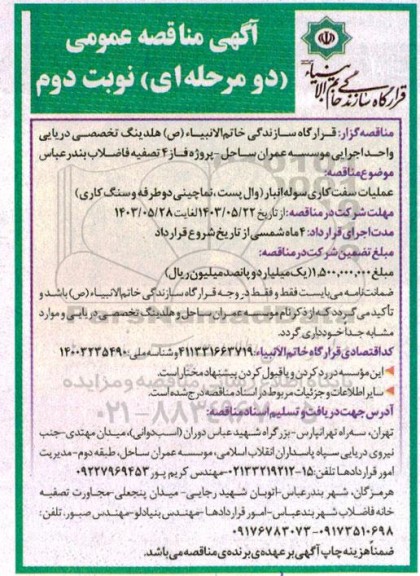 آگهی مناقصه عمومی
(دو مرحله‌ای) نوبت دوم
قرارگاه سازندگی خاتم الانبیاء
مناقصه‌گزار: قرارگاه سازندگی خاتم الانبیاء (ص) هلدینگ تخصصی دریایی
واحد اجرایی موسسه عمران ساحل - پروژه فاز ۴ تصفیه فاضلاب بندرعباس
موضوع مناقصه:
عملیات سفت کاری سوله انبار (وال پست، نماچینی دو طرفه و سنگ کاری)
مهلت شرکت در مناقصه: از تاریخ ۱۴۰۳/۰۵/۲۲ لغایت ۱۴۰۳/۰۵/۲۸
مدت اجرای قرارداد: ۴ ماه شمسی از تاریخ شروع قرارداد
مبلغ تضمین شرکت در مناقصه:
مبلغ ۱,۵۰۰,۰۰۰,۰۰۰ (یک میلیارد و پانصد میلیون ریال)
ضمانت‌نامه می‌بایست فقط و فقط در وجه قرارگاه سازندگی خاتم الانبیاء (ص) باشد و
تأکید می‌گردد که از ذکر نام موسسه عمران ساحل و هلدینگ تخصصی دریایی و موارد
مشابه جداً خودداری گردد.
کد اقتصادی قرارگاه خاتم الانبیاء: ۴۱۱۳۳۱۶۶۳۷۱۹ و شناسه ملی: ۱۴۰۰۳۲۳۵۴۹۰
این مؤسسه در رد کردن و یا قبول کردن پیشنهاد مختار است.
سایر اطلاعات و جزئیات مربوط در اسناد مناقصه درج شده است.
آدرس جهت دریافت و تسلیم اسناد مناقصه:
تهران، سه‌راه تهرانپارس - بزرگراه شهید عباس دوران (اسب‌دوانی)، میدان مهتدی - جنب
نیروی دریایی سپاه پاسداران انقلاب اسلامی، موسسه عمران ساحل، طبقه دوم - مدیریت
امور قراردادها تلفن: ۱۵-۰۲۱۳۳۲۱۹۲۱۲ - مهندس کریم پور ۰۹۲۲۷۹۶۹۴۵۳
هرمزگان، شهر بندرعباس - اتوبان شهید رجایی - میدان پنجعلی - مجاورت تصفیه
خانه فاضلاب شهر بندرعباس - امور قراردادها - مهندس بنیادلو - مهندس صبور. تلفن:
۰۹۱۷۳۵۱۰۶۹۸ - ۰۹۱۷۶۷۸۳۰۷۳
ضمناً هزینه چاپ آگهی بر عهده‌ی برنده‌ی مناقصه می‌باشد.